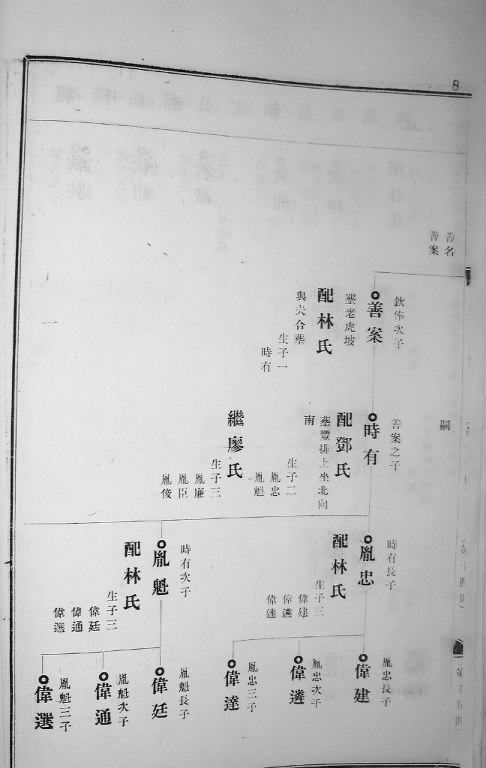 8
善名
善案
欽佈次子
善案
塟老虎坡
配林氏
與六合塟
生子一
時有
嗣
善案之子
時有
配鄧氏
塟豐排上坐北向
南
生子二
胤忠
胤魁
繼廖氏
生子三
胤廉
胤臣
胤俊
時有長子
胤忠
配林氏
生子三
偉建
偉遴
偉達
時有次子
胤魁
配林氏
生子三
偉廷
偉通
偉選
胤忠長子
偉建
胤忠次子
偉遴
胤忠三子
偉達
胤魁長子
偉廷
胤魁次子
偉通
胤魁三子
偉選